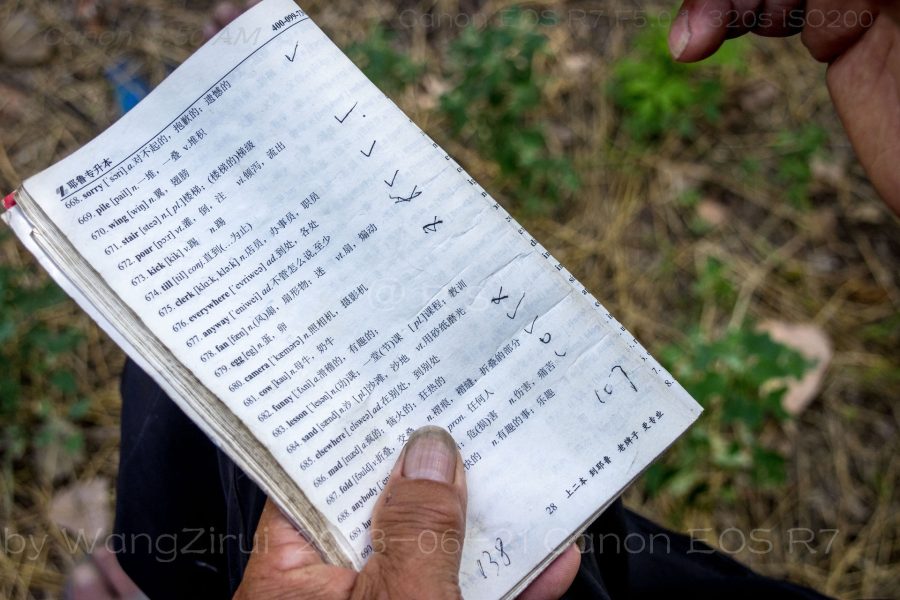 Canon EOS R7 F5.0 1/320s ISO200
400-099-73
耶鲁专升本
668. sorry ['sɔri] a.对不起的，抱歉的；遗憾的
669. pile [pail] n.一堆，一叠 v.堆积
670. wing [wiŋ] n.翼，翅膀
671. stair [steə] n.[pl.]楼梯；(楼梯的)梯级
672. pour [pɔ:r] vt.灌，倒，注 vi.倾泻，流出
673. kick [kik] v.踢 n.踢
674. till [til] conj.直到(…为止)
675. clerk [klɑ:k, klə:k] n.店员，办事员，职员
676. everywhere ['evriweə] ad.到处，各处
677. anyway ['eniwei] ad.不管怎么说,至少
678. fan [fæn] n.(风)扇，扇形物；迷 vt.扇，煽动
679. egg [eg] n.蛋，卵
680. camera ['kæmərə] n.照相机，摄影机
681. cow [kau] n.母牛，奶牛
682. funny ['fʌni] a.滑稽的，有趣的；
683. lesson ['lesn] n.(功)课；一堂(节)课 [pl.]课程；教训
684. sand [sænd] n.沙 [pl.]沙滩，沙地 vt.用砂纸磨光
685. elsewhere ['elsweə] ad.在别处，到别处
686. mad [mæd] a.疯的；恼火的；狂热的
687. fold [fould] v.折叠，交叠 n.褶痕，褶缝，折叠的部分
688. anybody pron. 任何人
689. 危(损)害 n.伤害，痛苦
690. 快的 n.有趣的事；乐趣
107
28 上二本 到耶鲁 老牌子 更专业
138
by WangZirui Canon EOS R7